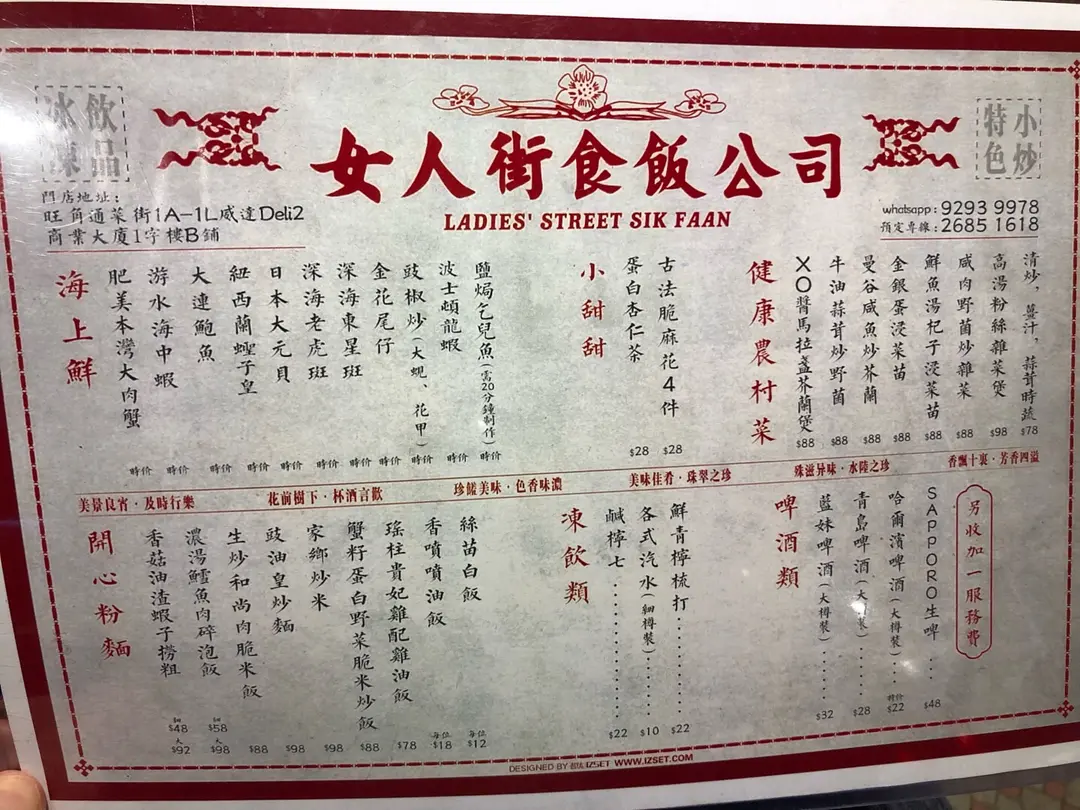 冰凍飲品
門店地址：
旺角通菜街1A-1L威達Deli2
商業大廈1字樓B鋪
女人街食飯公司
LADIES' STREET SIK FAAN
特色小炒
whatsapp : 9293 9978
預定專線 : 2685 1618
海上鮮
肥美本灣大肉蟹 時价
游水海中蝦 時价
大連鮑魚 時价
紐西蘭蟶子皇 時价
日本大元貝 時价
深海老虎斑 時价
深海東星斑 時价
金花尾仔 時价
豉椒炒（大蜆、花甲） 時价
波士頓龍蝦 時价
鹽焗乞兒魚（需20分鐘制作） 時价
小甜甜
蛋白杏仁茶 $28
古法脆麻花4件 $28
健康農村菜
XO醬馬拉盞芥蘭煲 $88
牛油蒜茸炒野菌 $88
曼谷咸魚炒芥蘭 $88
金銀蛋浸菜苗 $88
鮮魚湯杞子浸菜苗 $88
咸肉野菌炒雜菜 $88
高湯粉絲雜菜煲 $98
清炒，薑汁，蒜茸時蔬 $78
美景良宵·及時行樂
花前樹下·杯酒言歡
珍饈美味·色香味濃
美味佳肴·珠翠之珍
殊滋异味·水陸之珍
香飄十裏·芳香四溢
開心粉麵
香菇油渣蝦子撈粗 細$48 大$92
濃湯鱈魚肉碎泡飯 細$58 大$98
生炒和尚肉脆米飯 $88
豉油皇炒麵 $98
家鄉炒米 $98
蟹籽蛋白野菜脆米炒飯 $88
瑤柱貴妃雞配雞油飯 $78
香噴噴油飯 每位$18
絲苗白飯 每位$12
凍飲類
鹹檸七 $22
各式汽水（細樽裝） $10
鮮青檸梳打 $22
啤酒類
藍妹啤酒（大樽裝） $32
青島啤酒（大樽裝） $28
哈爾濱啤酒（大樽裝） 特价$22
SAPPORO生啤 $48
另收加一服務費
DESIGNED BY IZSET WWW.IZSET.COM